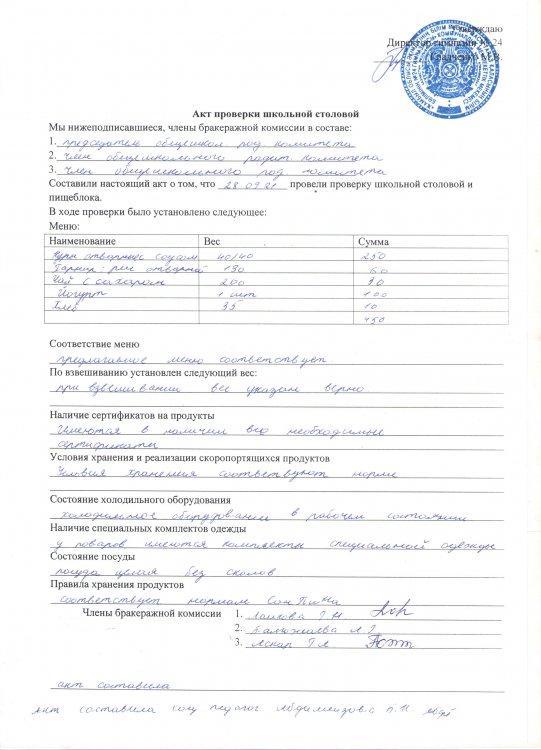 Утверждаю
Директор гимназии № 24
Акт проверки школьной столовой
Мы нижеподписавшиеся, члены бракеражной комиссии в составе:
1. председатель общешкол род комитета
2. член общешкольного родит комитета
3. член общешкольного род комитета
Составили настоящий акт о том, что 28.09.21 провели проверку школьной столовой и
пищеблока.
В ходе проверки было установлено следующее:
Меню:
Наименование Вес Сумма
Куры отварные с соусом 40/40 250
Гарнир: рис отварной 130 60
Чай с сахаром 200 30
Йогурт 1 шт 100
Хлеб 35 10
450
Соответствие меню
предлагаемое меню соответствует
По взвешиванию установлен следующий вес:
при взвешивании вес указан верно
Наличие сертификатов на продукты
Имеются в наличии все необходимые
сертификаты
Условия хранения и реализации скоропортящихся продуктов
Условия хранения соответствуют норме
Состояние холодильного оборудования
холодильное оборудование в рабочем состоянии
Наличие специальных комплектов одежды
у поваров имеются комплекты специальной одежды
Состояние посуды
посуда целая без сколов
Правила хранения продуктов
соответствует нормам СанПиНа
Члены бракеражной комиссии 1.
2.
3.
акт составила
акт составила соц педагог